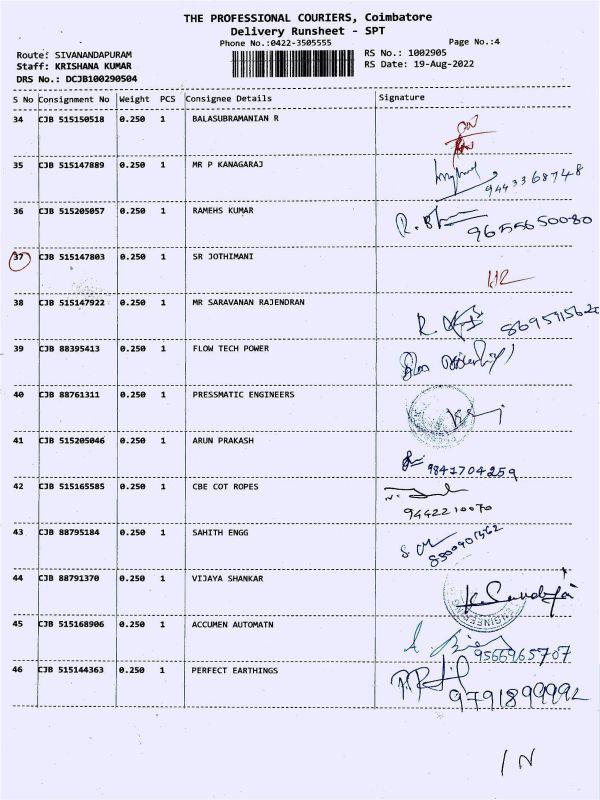 THE PROFESSIONAL COURIERS, Coimbatore
Delivery Runsheet - SPT
Phone No.:0422-3505555 Page No.:4
Route: SIVANANDAPURAM RS No.: 1002905
Staff: KRISHANA KUMAR RS Date: 19-Aug-2022
DRS No.: DCJB100290504
S No Consignment No Weight PCS Consignee Details Signature
34 CJB 515150518 0.250 1 BALASUBRAMANIAN R
35 CJB 515147889 0.250 1 MR P KANAGARAJ
9443368748
36 CJB 515205057 0.250 1 RAMEHS KUMAR
9655650080
37 CJB 515147803 0.250 1 SR JOTHIMANI
38 CJB 515147922 0.250 1 MR SARAVANAN RAJENDRAN
8695915620
39 CJB 88395413 0.250 1 FLOW TECH POWER
40 CJB 88761311 0.250 1 PRESSMATIC ENGINEERS
41 CJB 515205046 0.250 1 ARUN PRAKASH
9841704259
42 CJB 515165585 0.250 1 CBE COT ROPES
9442210070
43 CJB 88795184 0.250 1 SAHITH ENGG
44 CJB 88791370 0.250 1 VIJAYA SHANKAR
45 CJB 515168906 0.250 1 ACCUMEN AUTOMATN
9566965707
46 CJB 515144363 0.250 1 PERFECT EARTHINGS
9791899992
IN